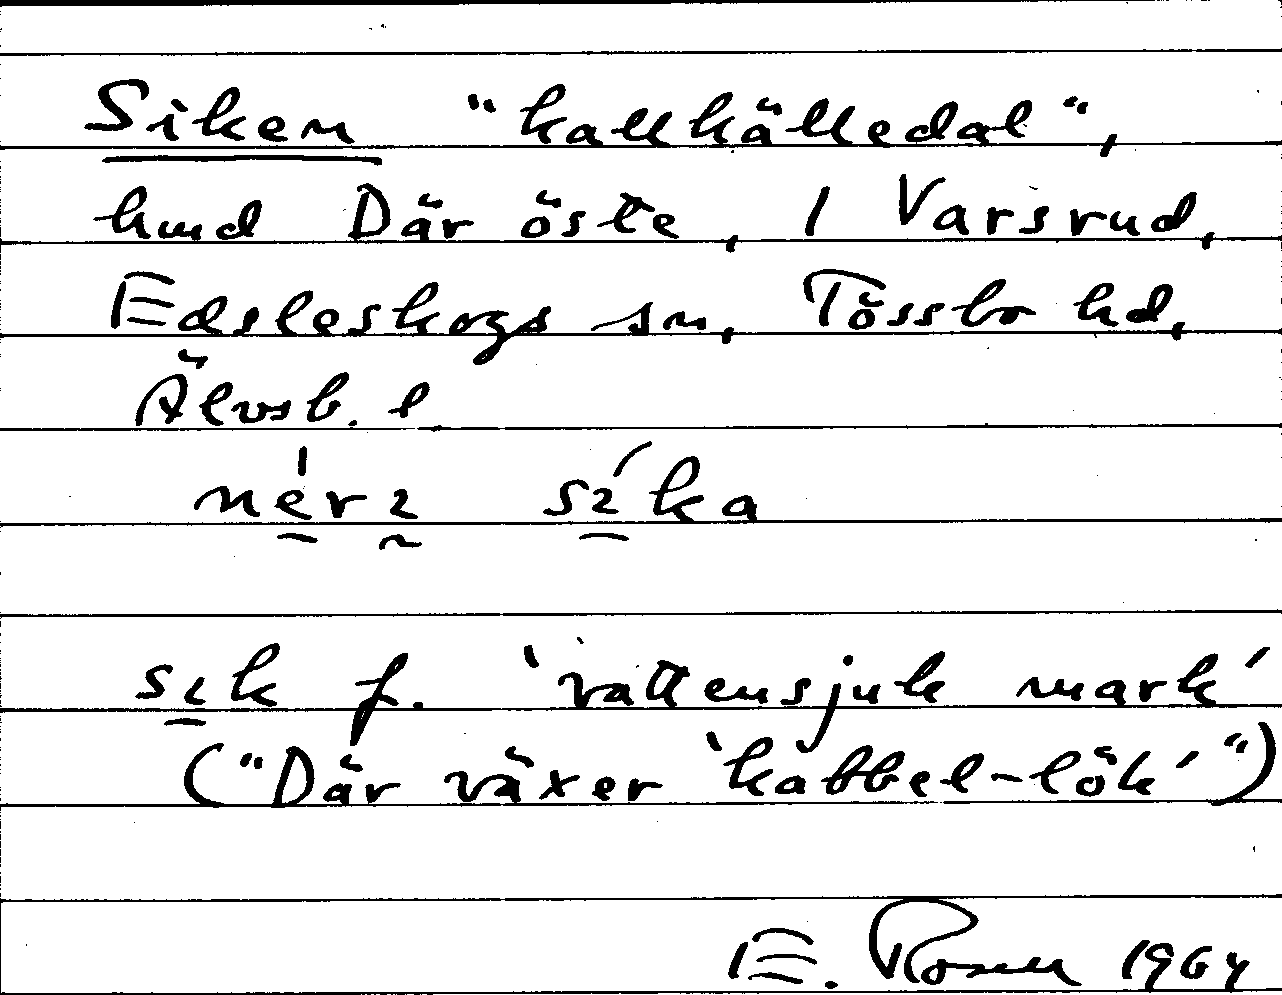 Siken "kallkälledal",
hmd Där öste, 1 Varsrud,
Edsleskogs sn, Tössbo hd,
Älvsb. l
nérɩ sɩ́ka
sɩk f. 'vattensjuk mark'
("Där växer 'käbbel-lök'")
E. Rosell 1964